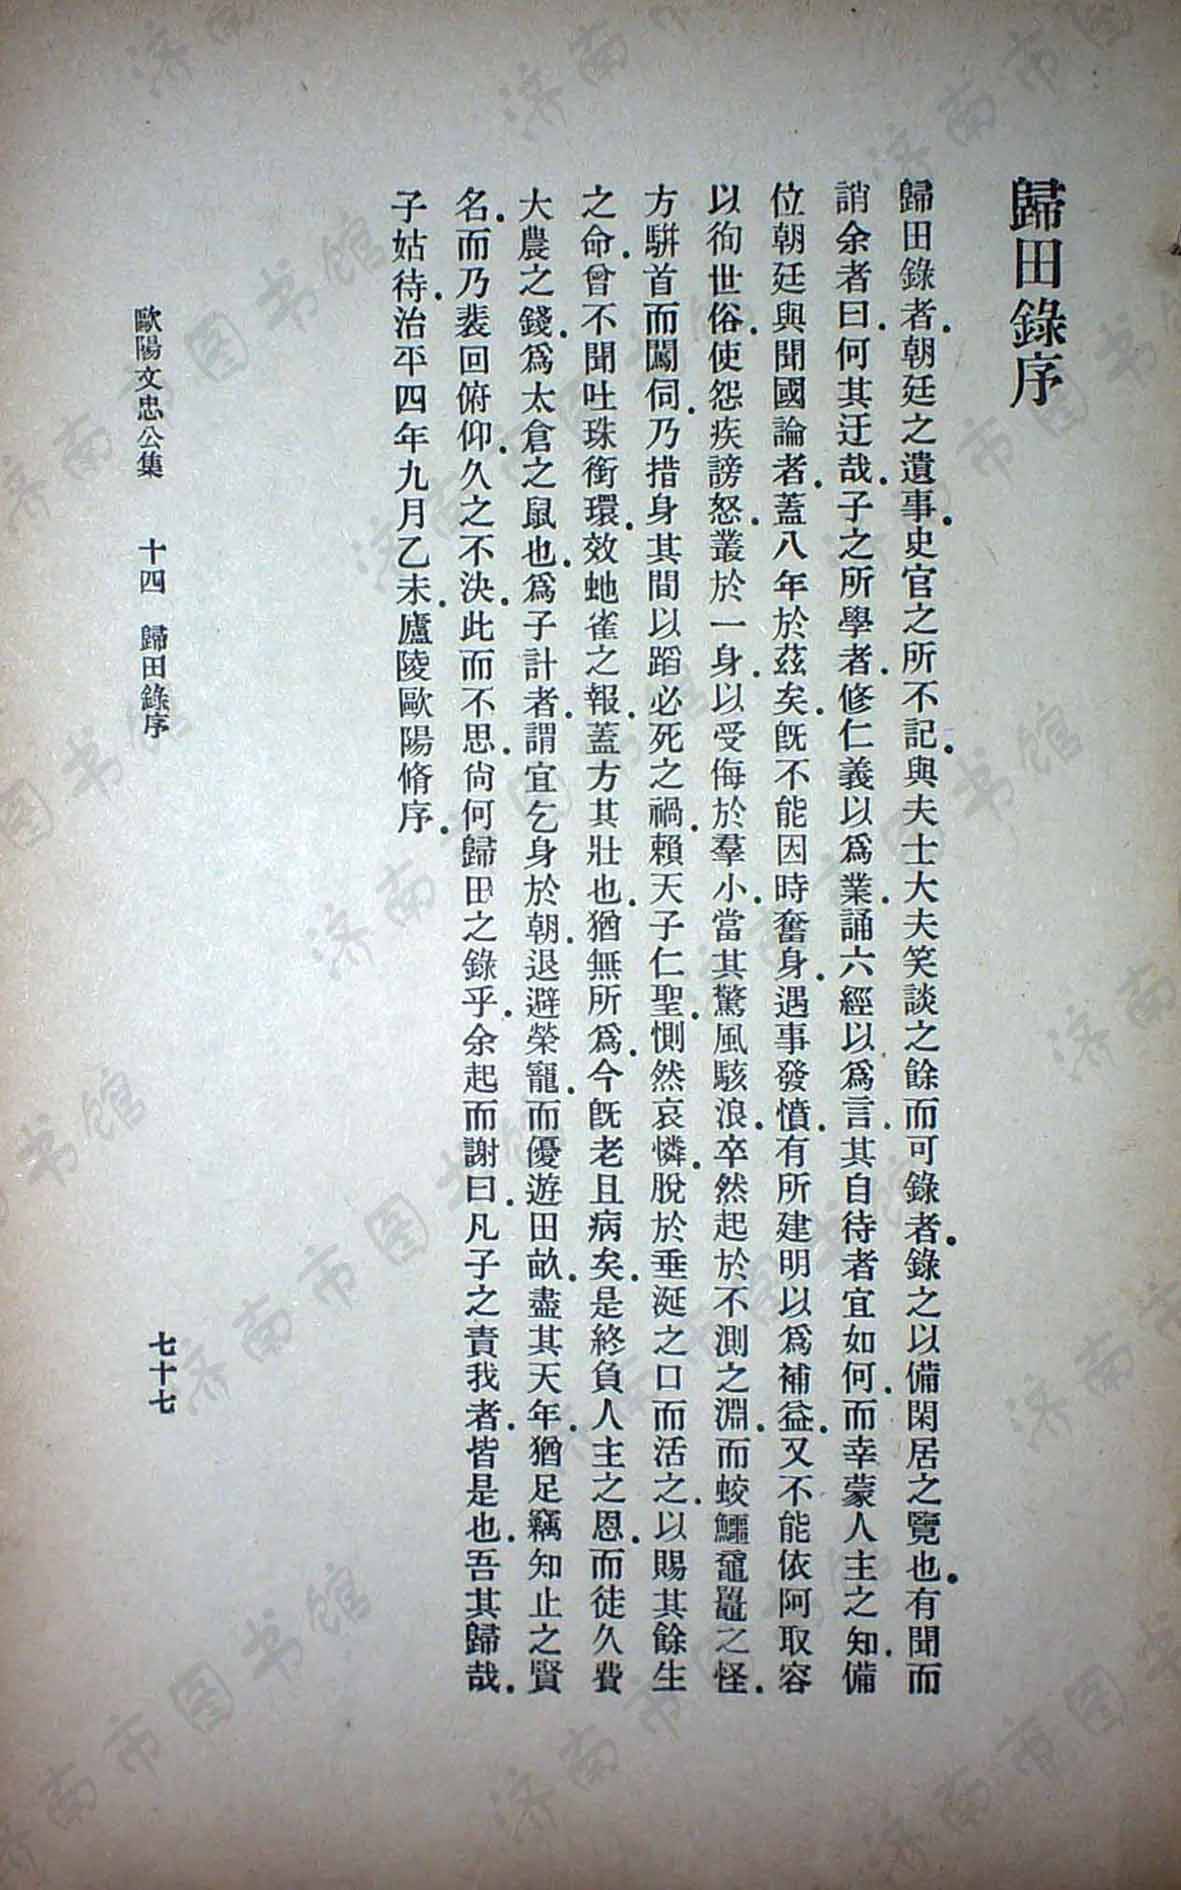 歸田錄序
歸田錄者.朝廷之遺事.史官之所不記.與夫士大夫笑談之餘而可錄者.錄之以備閑居之覽也.有聞而
誚余者曰.何其迂哉.子之所學者.修仁義以爲業.誦六經以爲言.其自待者宜如何.而幸蒙人主之知.備
位朝廷與聞國論者.蓋八年於茲矣.旣不能因時奮身.遇事發憤.有所建明以爲補益.又不能依阿取容
以徇世俗.使怨疾謗怒.叢於一身.以受侮於羣小.當其驚風駭浪.卒然起於不測之淵.而蛟鱷黿鼉之怪.
方駢首而闖伺.乃措身其間以蹈必死之禍.賴天子仁聖.惻然哀憐.脫於垂涎之口而活之.以賜其餘生
之命.曾不聞吐珠銜環.效虵雀之報.蓋方其壯也.猶無所爲.今旣老且病矣.是終負人主之恩.而徒久費
大農之錢.爲太倉之鼠也.爲子計者.謂宜乞身於朝.退避榮寵.而優遊田畝.盡其天年.猶足竊知止之賢
名.而乃裴回俯仰.久之不決.此而不思.尙何歸田之錄乎.余起而謝曰.凡子之責我者.皆是也.吾其歸哉.
子姑待.治平四年九月乙未.廬陵歐陽脩序.
歐陽文忠公集 十四 歸田錄序 七十七
济南市图书馆